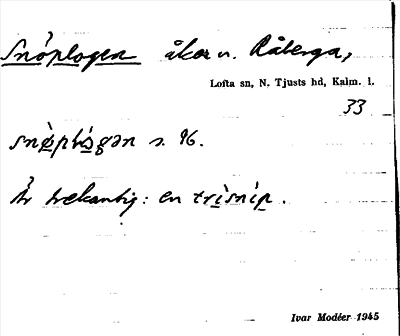 Snöplogen åker v. Råberga,
Lofta sn, N. Tjusts hd, Kalm. l.
33
snø̀plώgən s. 96.
Är trekantig: en trìsnίp.
Ivar Modéer 1945